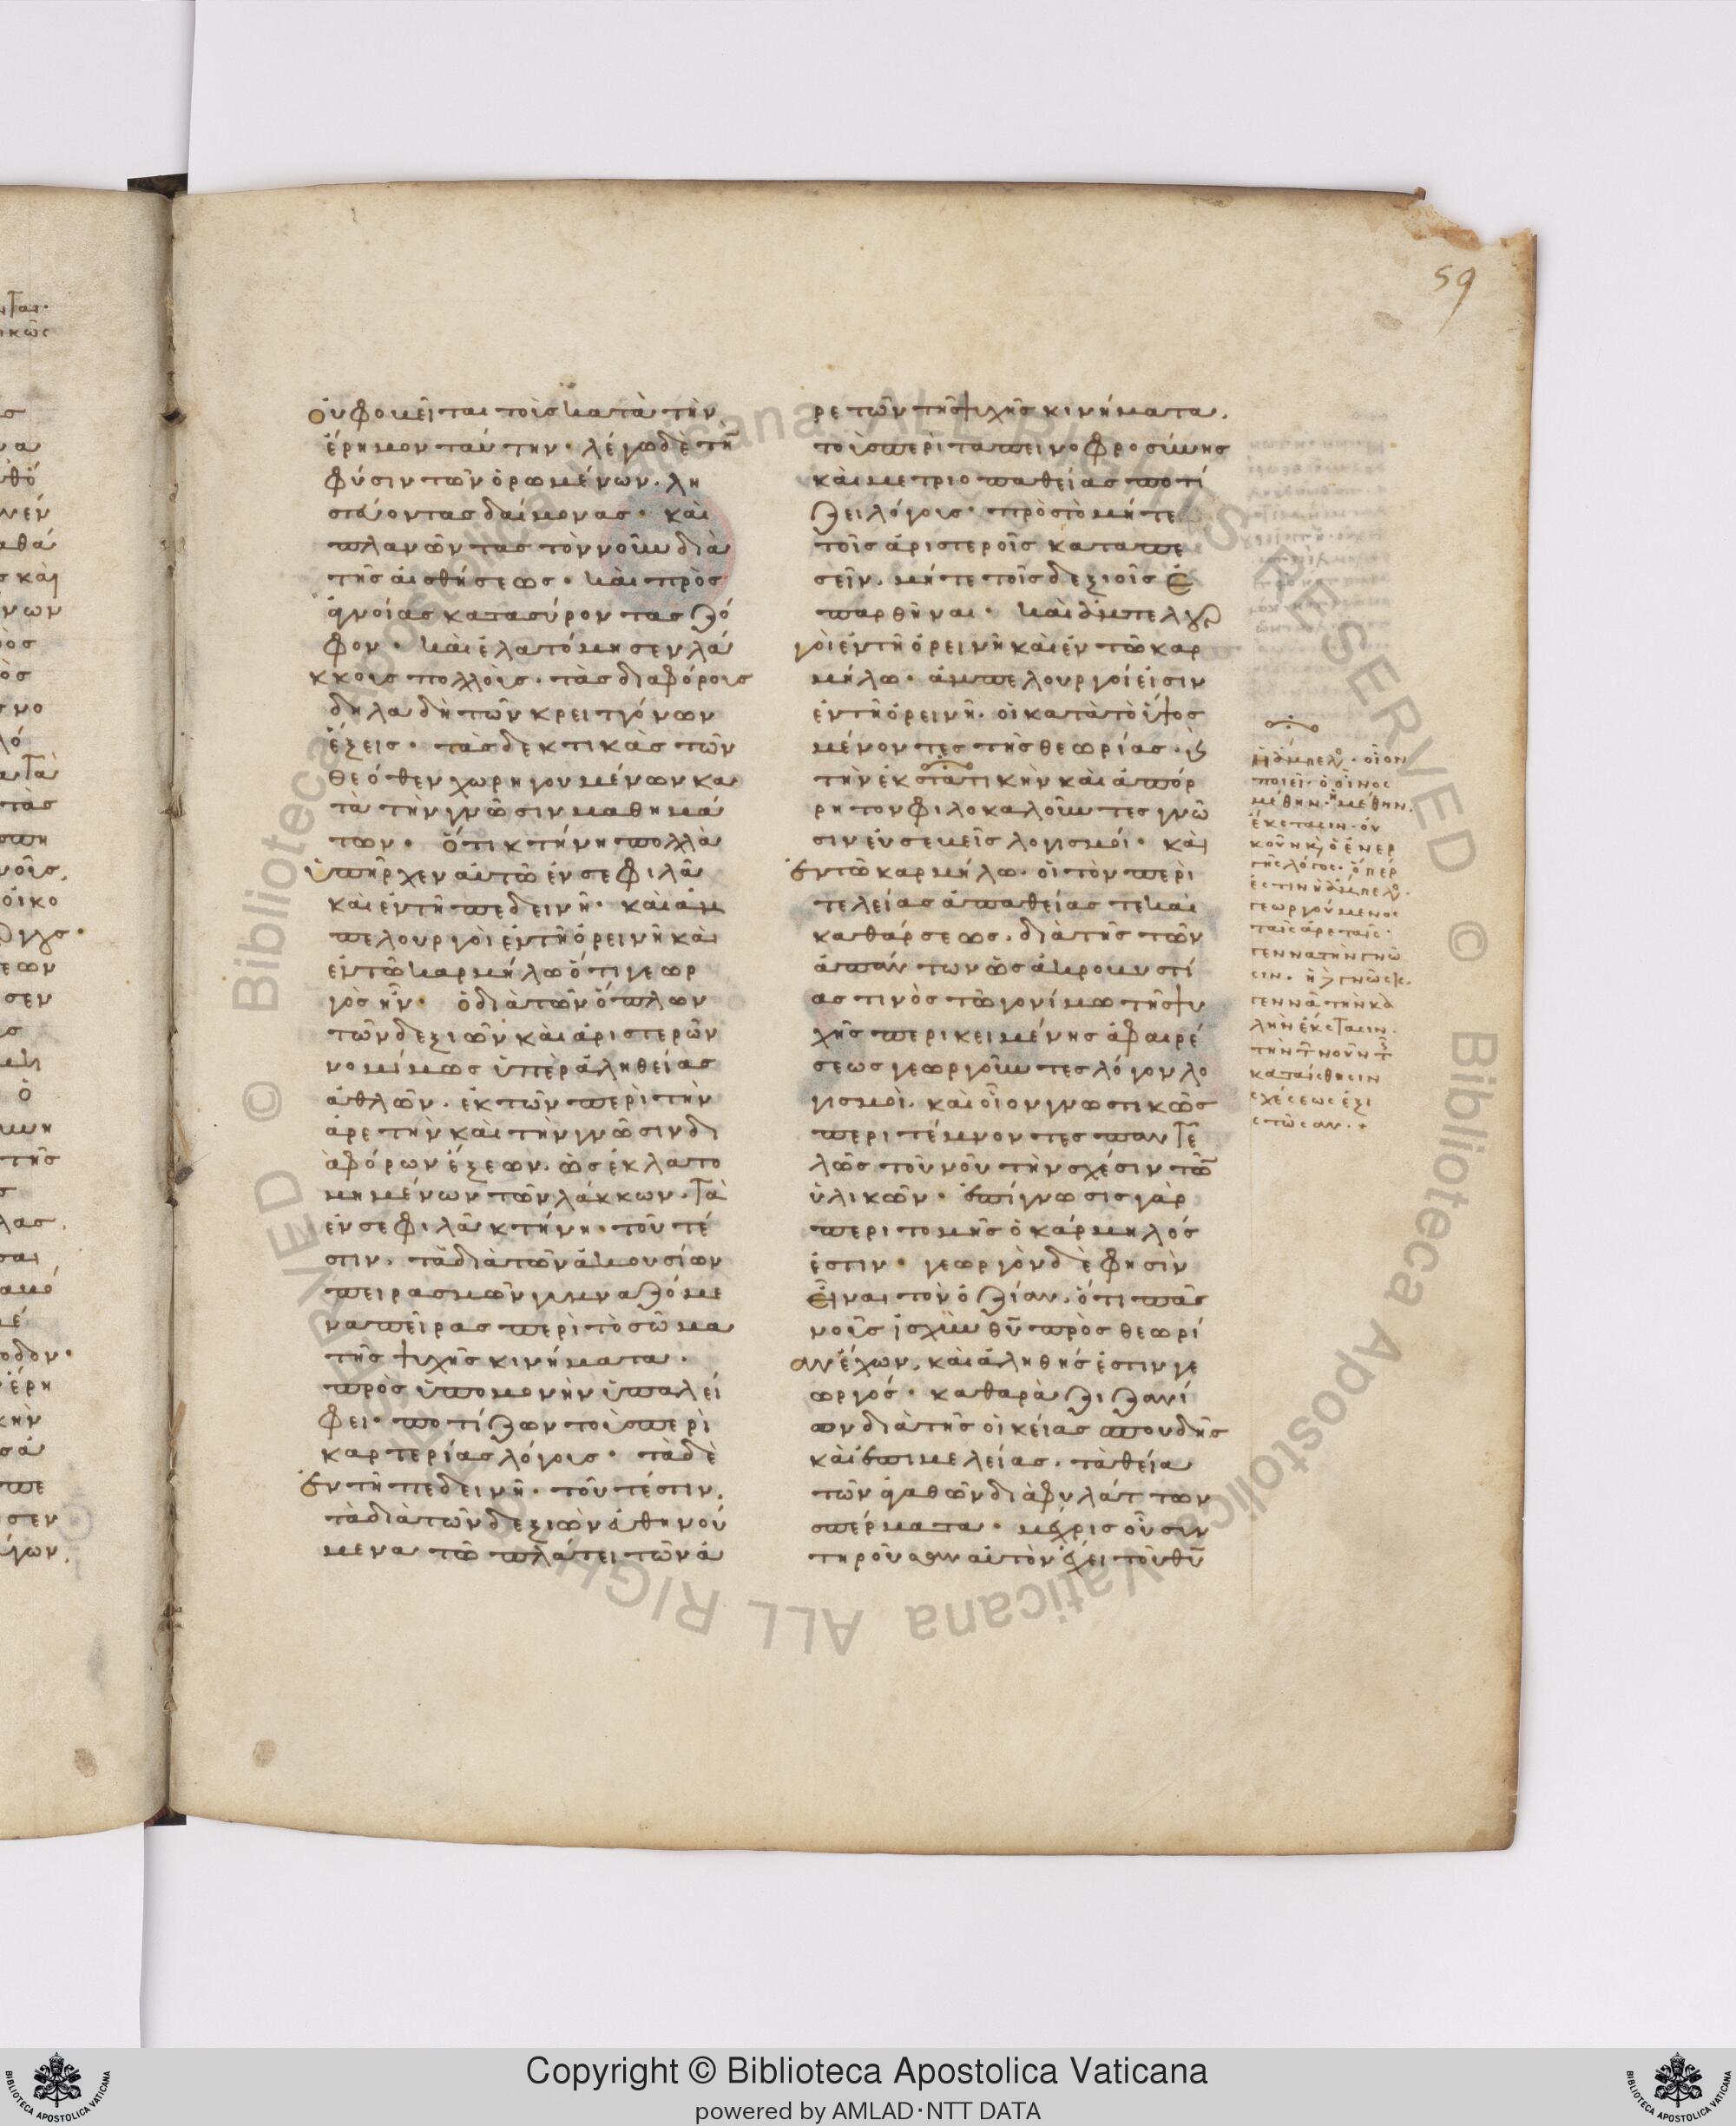 59
οὐ φοιβεῖται τοὺς κατὰ τὴν
ἔρημον ταύτην· λέγω δὲ τὴν
φύσιν τῶν ὁρωμένων· λη
στεύοντας δαίμονας· καὶ
πλανῶντας τὸν νοῦν διὰ
τῆς αἰσθήσεως· καὶ πρὸς
ἀγνοίας κατασύροντας ζό
φον· καὶ ἐλατόμησεν λά
κκους πολλοὺς· τὰς διαφόρους
δηλαδὴ τῶν κρειττόνων
ἕξεις· τὰς δεκτικὰς τῶν
θεόθεν χωρηγουμένων κα
τὰ τὴν γνῶσιν μαθημά
των· ὅτι κτήνη πολλὰ
ὑπῆρχεν αὐτῶ ἐν σεφιλᾶ
καὶ ἐν τῆ πεδεινῆ· καὶ ἀμ
πελουργοὶ ἐν τῆ ὀρεινῆ καὶ
ἐν τῶ καρμήλω ὅτι γεωρ
γὸς ἦν· ὁ διὰ τῶν ὅπλων
τῶν δεξιῶν καὶ ἀριστερῶν
νομίμως ὑπὲρ ἀληθείας
ἀθλῶν· ἐκ τῶν περὶ τὴν
ἀρετὴν καὶ τὴν γνῶσιν δι
αφόρων ἕξεων· ὡς ἐκ λατο
μημένων τῶν λάκκων· τὰ
ἐν σεφιλᾶ κτήνη· τουτέ
στιν· τὰ διὰ τῶν ἀκουσίων
πειρασμῶν γυμναζόμε
να πείρας περὶ τὸ σῶμα
τῆς ψυχῆς κινήματα·
πρὸς ὑπομονὴν ὑπαλεί
φει· ποτίζων τοὺς περὶ
καρτερίας λόγους· τὰ δὲ
ἐν τῆ πεδεινῆ· τουτέστιν·
τὰ διὰ τῶν δεξιῶν εὐθηνού
μενα τῶ πλάτει τῶν ἀ
ρετῶν τῆς ψυχῆς κινήματα·
τοὺς περὶ ταπεινοφροσύνης
καὶ μετριοπαθείας ποτί
ζει λόγους· πρὸς τὸ μήτε
τοῖς ἀριστεροῖς καταπε
σεῖν· μήτε τοῖς δεξιοῖς ἐ
παρθῆναι· καὶ ἀμπελουρ
γοὶ ἐν τῆ ὀρεινῆ καὶ ἐν τῶ καρ
μήλω· ἀμπελουργοί εἰσιν
ἐν τῆ ὀρεινῆ· οἱ κατὰ τὸ ὕψος
μένοντες τῆς θεωρίας· καὶ
τὴν ἐκστατικὴν καὶ ἀπόρ
ρητον φιλοκαλοῦντες γνῶ
σιν εὐσεβεῖς λογισμοί· καὶ
ἐν τῶ καρμήλω· οἱ τὸν περὶ
τελείας ἀπαθείας τε καὶ
καθάρσεως· διὰ τῆς τῶν
ἁπάντων ὡς ἀκροβυστί
ας τινὸς τῶ γονίμω τῆς ψυ
χῆς περικειμένης ἀφαιρέ
σεως γεωργοῦντες λόγον λο
γισμοὶ· καὶ οἷον γνωστικῶς
περιτέμνοντες παντε
λῶς τοῦ νοῦ τὴν σχέσιν τῶν
ὑλικῶν· ἐπίγνωσις γὰρ
περιτομῆς ὁ κάρμηλός
ἐστιν· γεωργὸν δὲ φησὶν
εἶναι τὸν ὀζίαν· ὅτι πᾶς
νοῦς ἰσχὺν θῦ πρὸς θεωρί
αν ἔχων· καὶ ἀληθής ἐστιν γε
ωργός· καθαρὰ ζιζανί
ων διὰ τῆς οἰκείας σπουδῆς
καὶ ἐπιμελείας· τὰ θεῖα
τῶν ἀγαθῶν διαφυλάττων
σπέρματα· μέχρις οὗ συν
τηροῦσαν αὐτὸν ἔχει τοῦ θῦ
οἷον
ποιεῖ· ὁ οἶνος
μέθην· ἡ μέθην·
ἔκστασιν· οὐ
ὁ ἐνερ
γὴς λόγος· ὅπερ
ἐστὶν ἡ ἄμπελος·
γεωργούμενος
ταῖς ἀρεταῖς·
γεννᾶ τὴν γνῶ
σιν· ἡ δὲ γνῶσις
γεννᾶ τὴν κα
λὴν ἔκστασιν·
τὴν τὸν νοῦν τῆς
κατ' αἴσθησιν
σχέσεως ἐξι
στῶσαν·